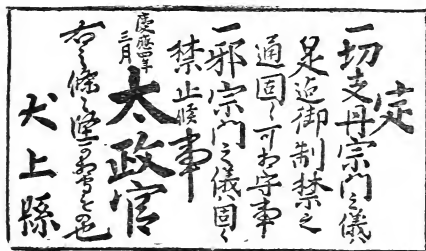 定
一切支丹宗門之儀
是迄御制禁之
通固ク可相守事
一邪宗門之儀固ク
禁止候事
慶應四年
三月
太政官
右之條々堅可相守もの也
犬上縣